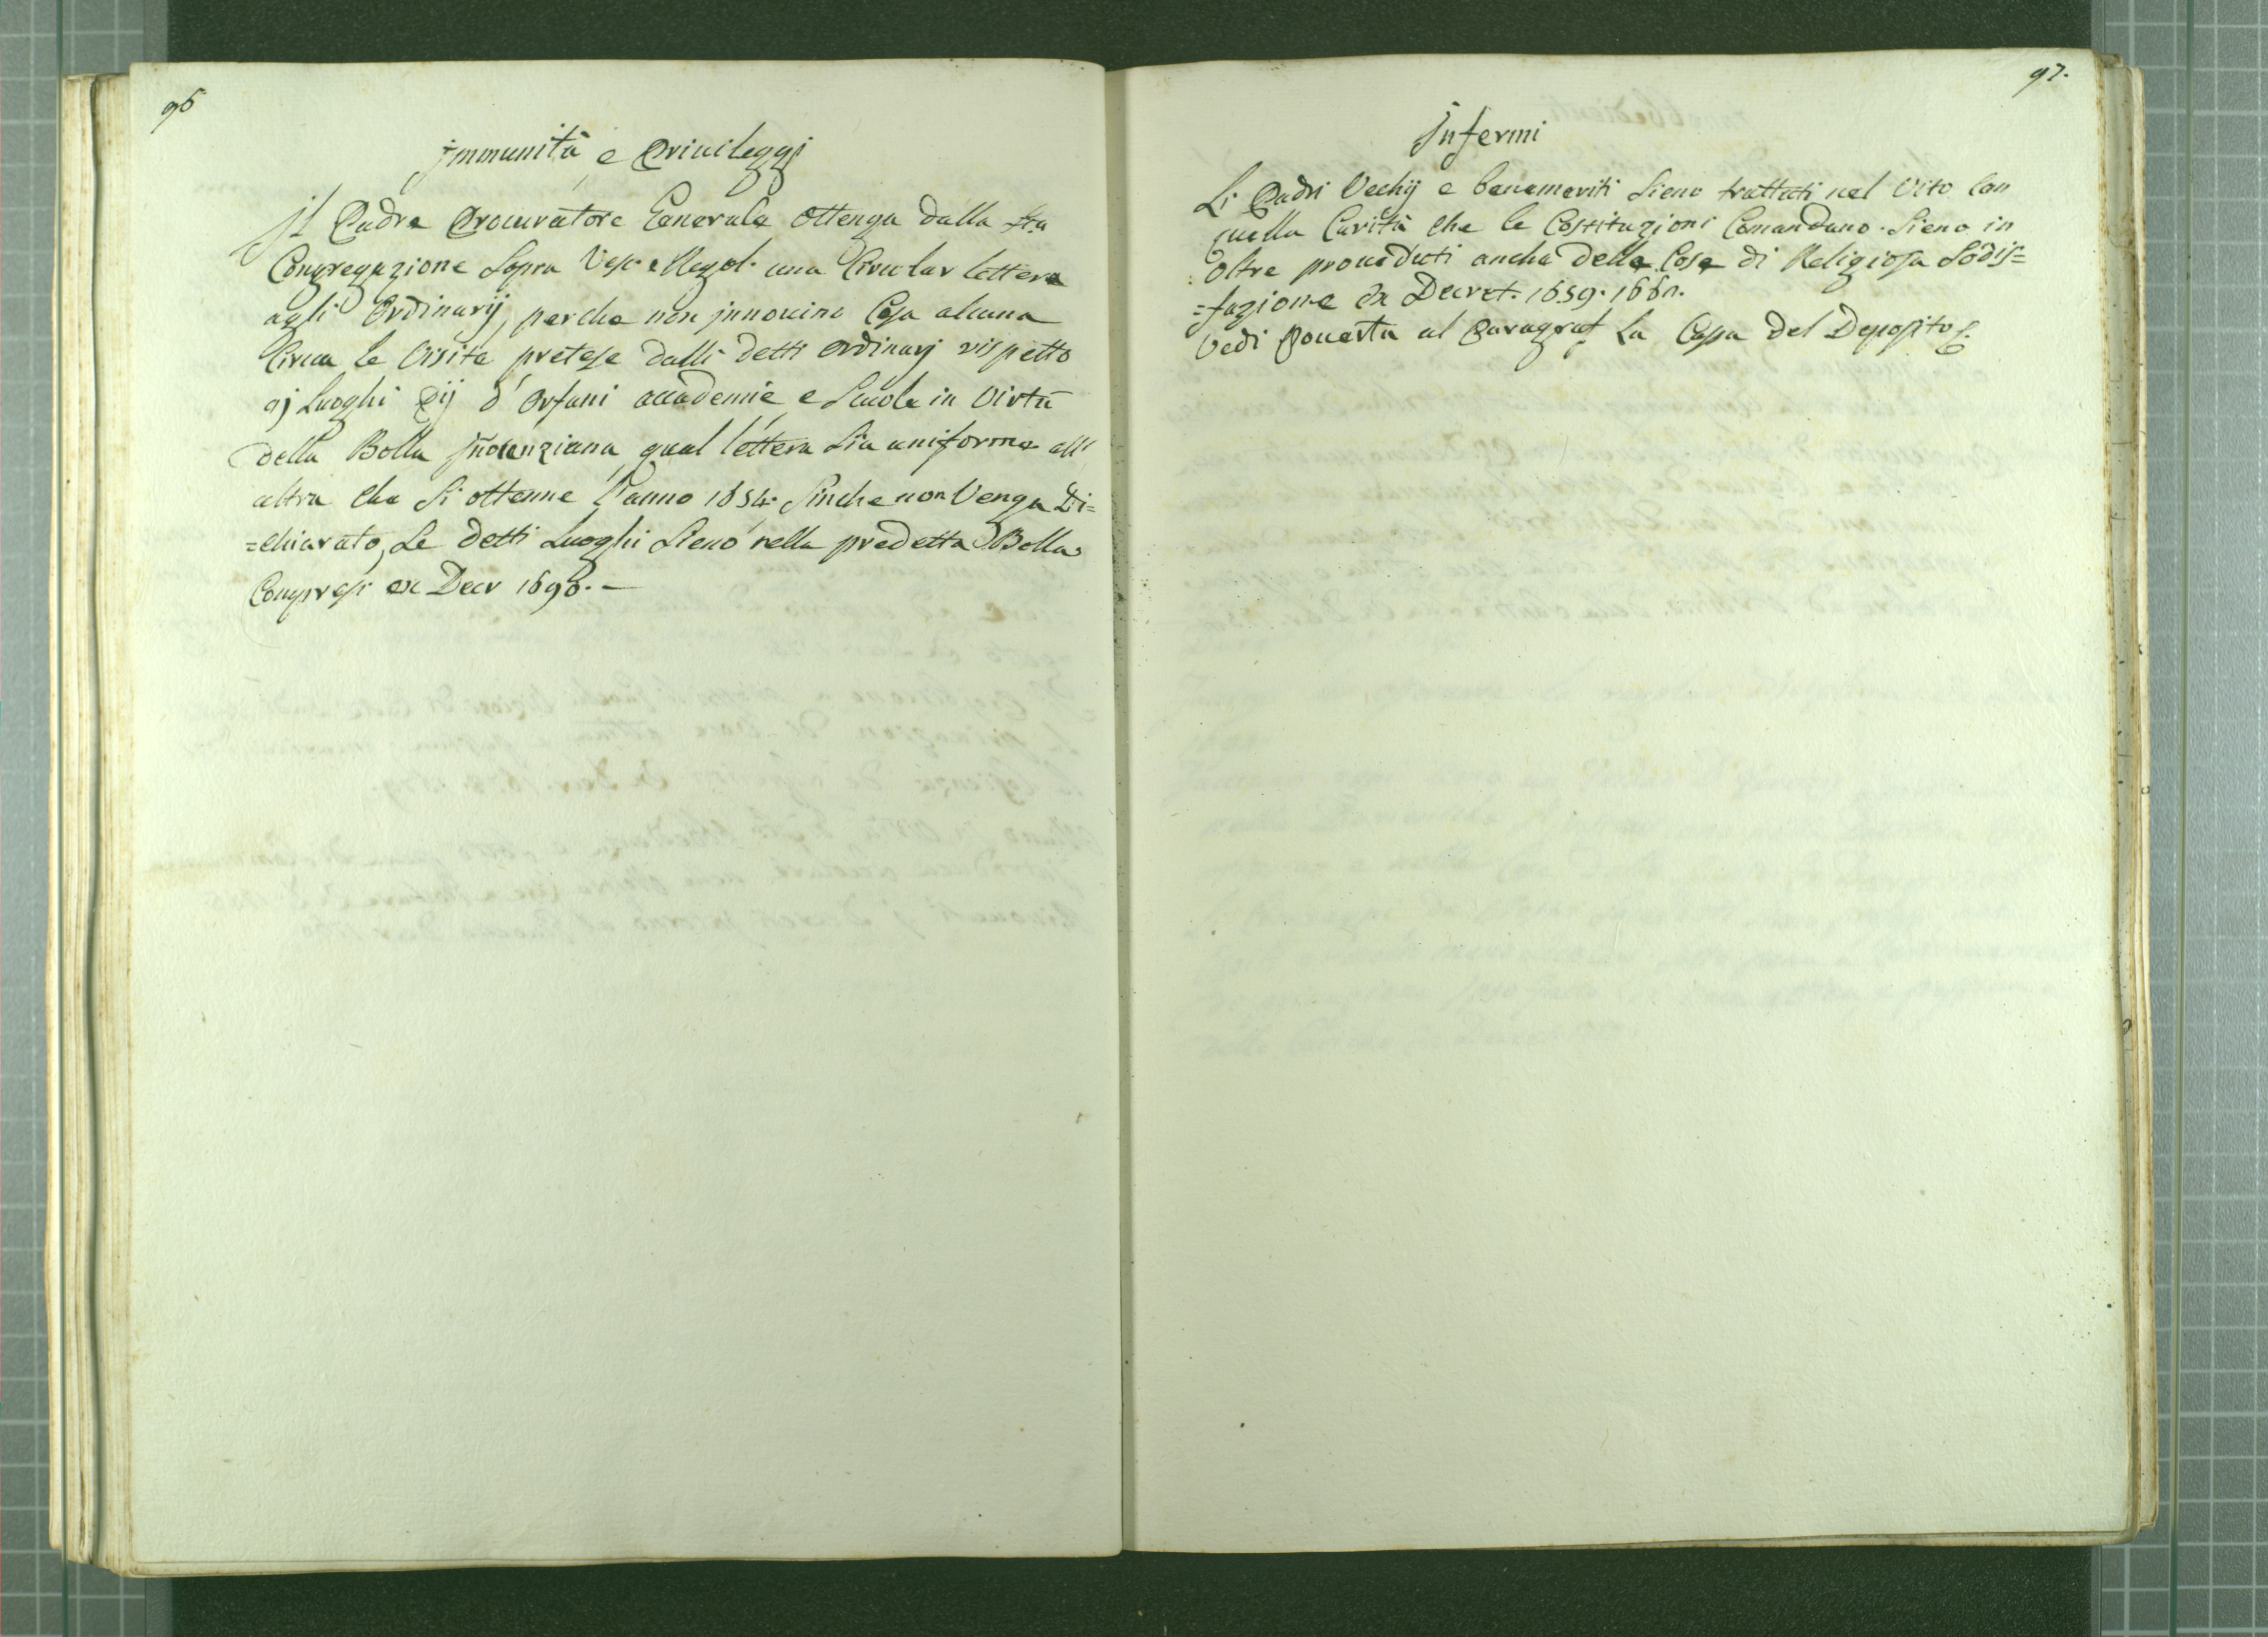 96
jmmunità e Priuileggj
jl Padre Procuratore Generale ottenga dalla Sta
Congregazione Sopra Vesc. e Regol. una Circular lettera
agli Ordinarij, perche non jnnouino Cosa alcuna
Circa le Visite pretese dalli detti ordinarj rispetto
aj Luoghi Pij d'Orfani accademie e Scuole in Virtù
della Bolla jñocenziana qual lettera Sia uniforme all'
altra che Si ottenne l'anno 1654. Sinche non Venga Di=
=chiarato, Se detti Luoghi Sieno nella predetta Bolla
Compresi ex Decr 1696. —
97.
jnfermi
Li Padri Vechij e benemeriti Sieno trattati nel Vito Con
quella Carità che le Costituzioni Comandano. Sieno in
oltre proueduti anche delle Cose di Religiosa Sodis=
=fazione Ex Decret. 1659. 1660.
Vedi Pouertà al Paragraf La Cassa del Deposito